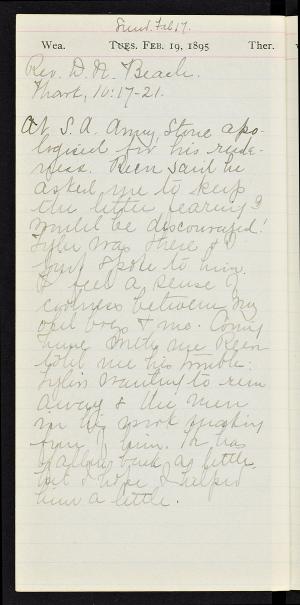 Sund. Feb 17.
Wea. TUES. FEB. 19, 1895 Ther.
Rev. D. N. Beach.
Mark, 10:17-21.
At S. A. Army, Stone apo-
logised for his rude-
ness. Keen said he
asked me to keep
the letter fearing I
would be discouraged!
Tyler was there & I
spoke to him.
I feel a sense of
coyness between my
old boy & me. Coming
home with me Keen
told me his trouble:
wanting to run
away & the men
in his work speaking
of him. He has
fallen back a little,
but I hope I helped
him a little.